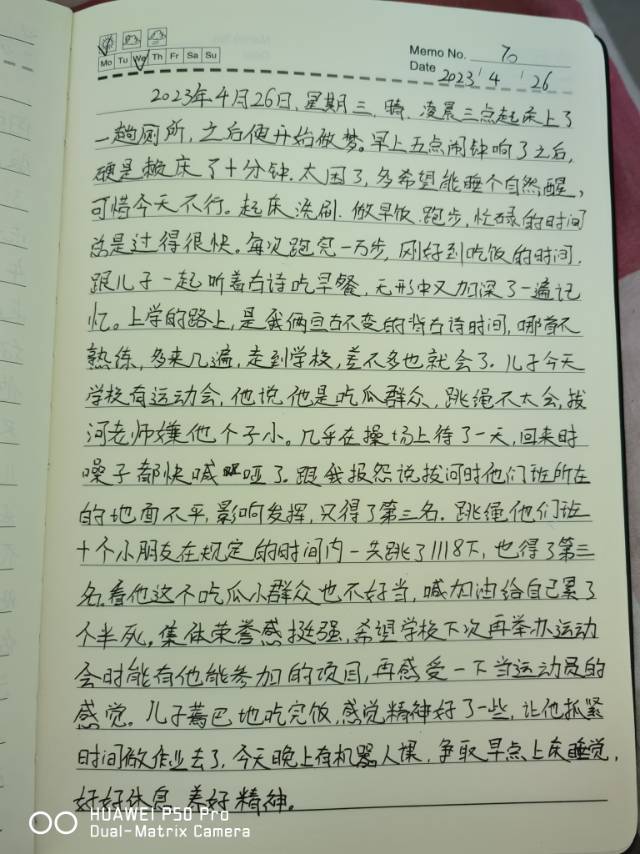 Mo Tu We Th Fr Sa Su
Memo No. 70
Date 2023 ' 4 ' 26
2023年4月26日,星期三,晴,凌晨三点起床上了
一趟厕所,之后便开始做梦。早上五点闹钟响了之后,
硬是赖床了十分钟.太困了,多希望能睡个自然醒,
可惜今天不行。起床洗刷.做早饭.跑步,忙碌的时间
总是过得很快。每次跑完一万步,刚好到吃饭的时间,
跟儿子一起听着古诗吃早餐,无形中又加深了一遍记
忆。上学的路上,是我俩亘古不变的背古诗时间,哪首不
熟练,多来几遍,走到学校,差不多也就会了.儿子今天
学校有运动会,他说他是吃瓜群众,跳绳不太会,拔
河老师嫌他个子小。几乎在操场上待了一天,回来时
嗓子都快喊哑了.跟我报怨说拔河时他们班所在
的地面不平,影响发挥,只得了第三名.跳绳他们班
十个小朋友在规定的时间内一共跳了1118下,也得了第三
名.看他这个吃瓜小群众也不好当,喊加油给自己累了
个半死。集体荣誉感挺强,希望学校下次再举办运动
会时能有他能参加的项目,再感受一下当运动员的
感觉。儿子蔫巴地吃完饭,感觉精神好了一些,让他抓紧
时间做作业去了,今天晚上有机器人课,争取早点上床睡觉,
好好休息,养好精神。
HUAWEI P50 Pro
Dual-Matrix Camera